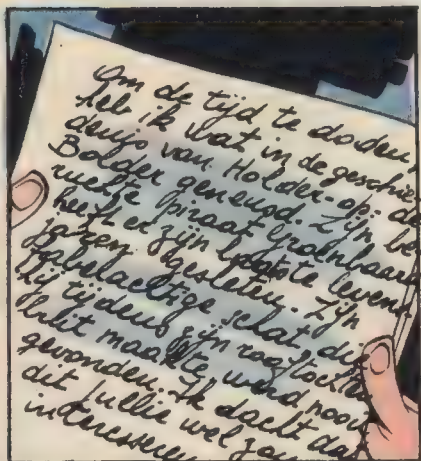 Om de tijd te doden,
heb ik wat in de geschie-
denis van Holder-op-de
Bolder geneusd. Zijn be
ruchte piraat Groenbaard
heeft er zijn laatste levens
jaren gesleten. Zijn
fabelachtige schat die
hij tijdens zijn rooftochten
buit maakte werd nooit
gevonden. Ik dacht dat
dit jullie wel zou
interesseren